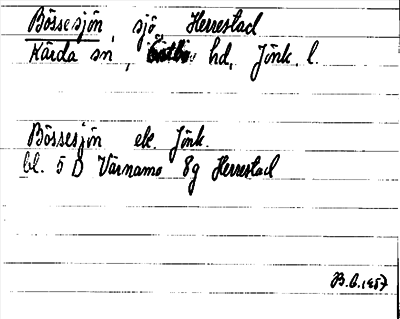 Bössesjön, sjö Herrestad
Kärda sn, hd, Jönk. l.
Bössesjön ek. Jönk.
bl. 5 D Värnamo 8g Herrestad
B.C. 1957